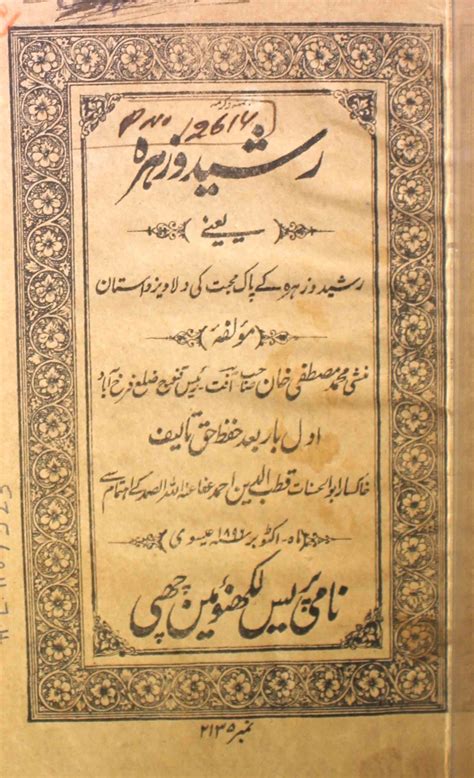 P No 12614
رشید و زہرہ
یعنے
رشید و زہرہ کے پاک محبت کی دلاویز داستان
مؤلفۂ
منشی محمد مصطفٰی خان صاحب آفت رئیس قنوج ضلع فرخ آباد
اول بار بعد حفظ حق تالیف
خاکسار ابو الحسنات قطب الدین احمد عفا عنہ اللہ الصمد کے اہتمام سے
ماہ اکتوبر ۱۸۹۶ عیسوی
نامی پریس لکھنؤ مین چھپی
نمبر ۲۱۳۵